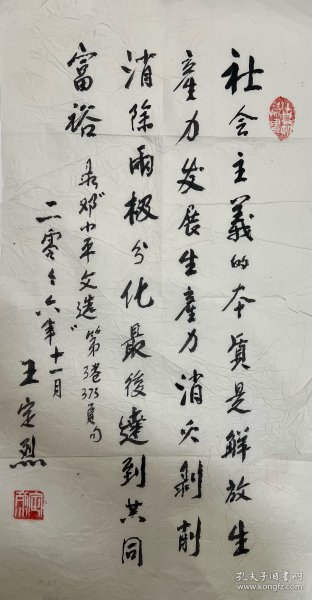 社会主義的本质是解放生
產力发展生產力消灭剥削
消除兩极分化最後達到共同
富裕
录邓小平文选"第3卷373頁句
二零零六年十一月
王定烈
孔夫子旧书网